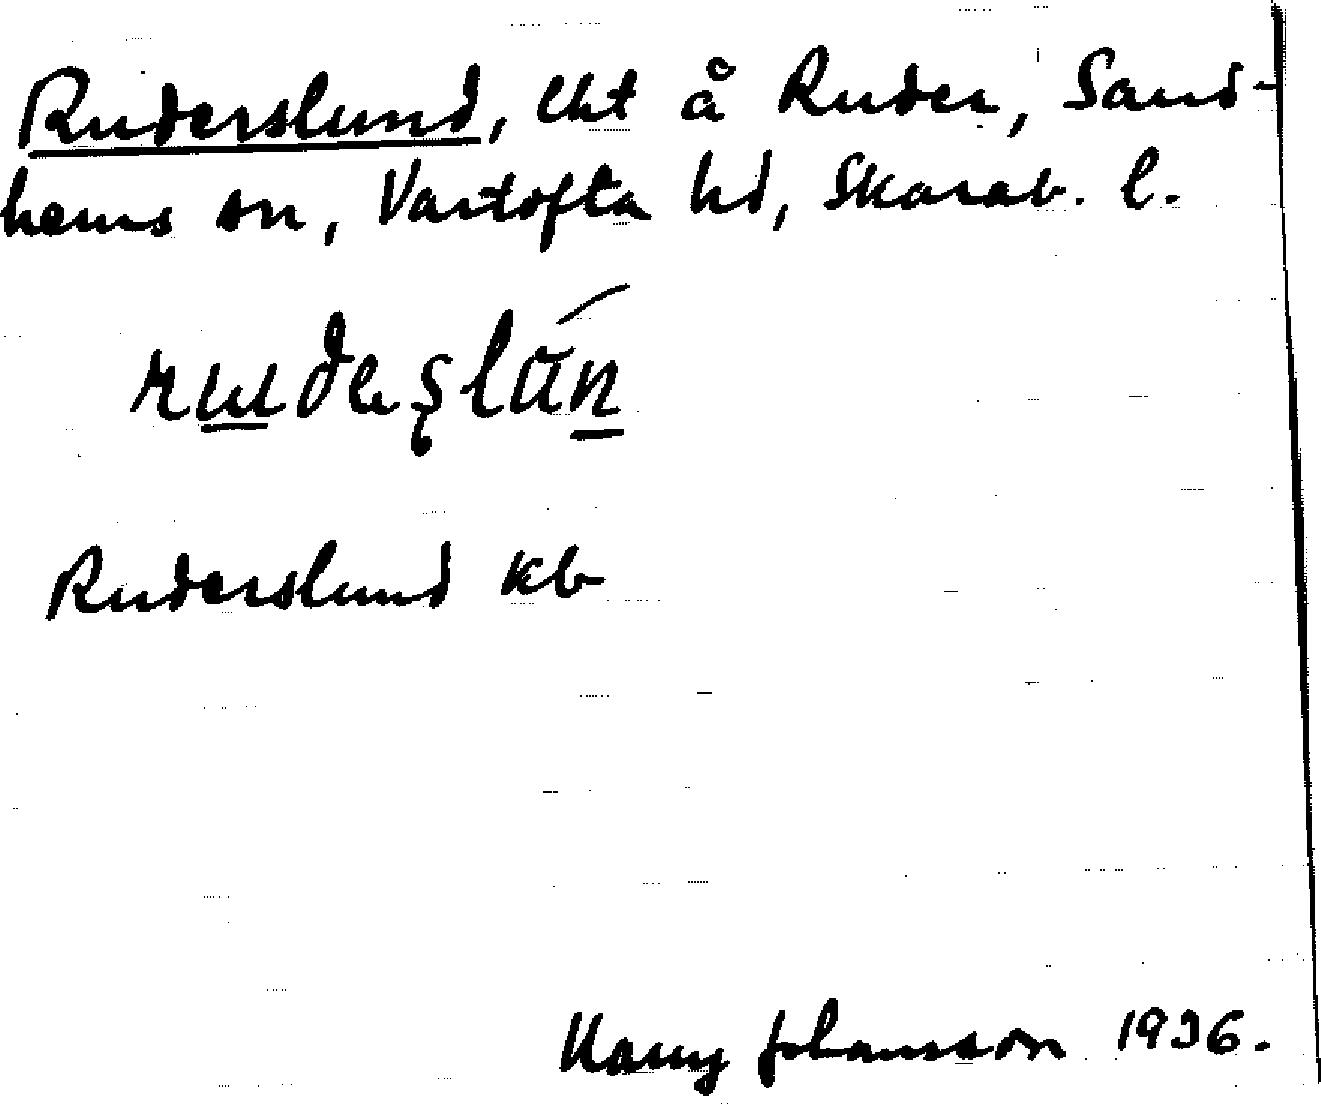 Ruderslund, lht å Ruder, Sand-
hems sn, Vartofta hd, Skarab. l.
Ruderslund kb
Harry Johansson 1936.